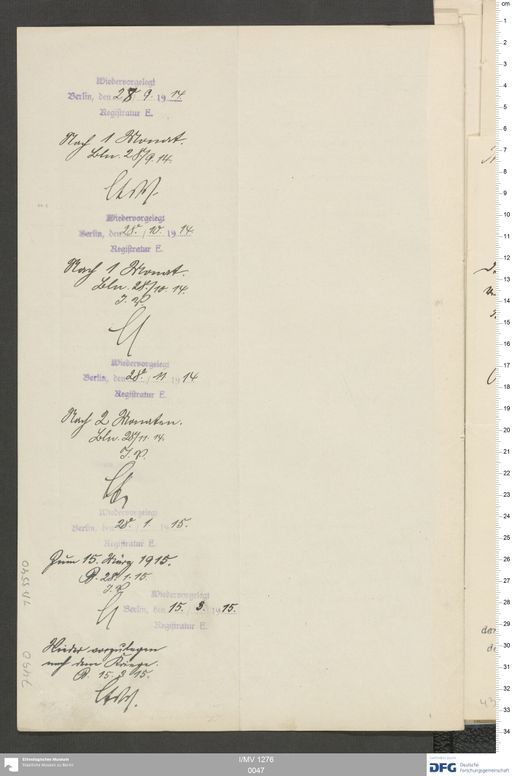 Wiedervorgelegt
Berlin, den 28. 9. 1914.
Registratur E.
Nach 1 Monat.
Bln. 28/9 14.
Wiedervorgelegt
Berlin, den 28. / 10. 1914
Registratur E.
Nach 1 Monat.
Bln. 28./10 14.
I. V.
Wiedervorgelegt
Berlin, den 28. / 11 1914
Registratur E.
Nach 2 Monaten.
Bln. 28/11. 14.
I. V.
Wiedervorgelegt
Berlin, den 28. 1. 1915.
Registratur E.
Zum 15. März 1915.
B. 28. 1. 15.
I. V.
Wiedervorgelegt
Berlin, den 15. 3. 1915.
Registratur E.
Wieder vorzulegen
nach dem Kriege.
B. 15. 3. 15.
Ethnologisches Museum
Staatliche Museen zu Berlin
I/MV 1276
0047
DFG Deutsche
Forschungsgemeinschaft
cm
1
2
3
4
5
6
7
8
9
10
11
12
13
14
15
16
17
18
19
20
21
22
23
24
25
26
27
28
29
30
31
32
33
34